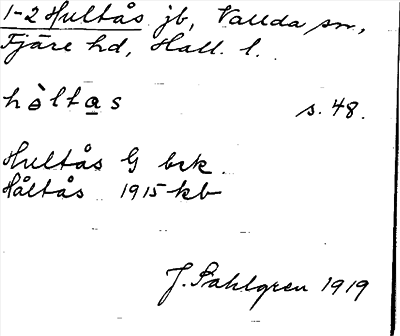 1-2 Hultås jb, Vallda sn,
Fjäre hd, Hall. l.
hòltas s. 48.
Hultås G brk.
Håltås 1915 kb
J. Sahlgren 1919